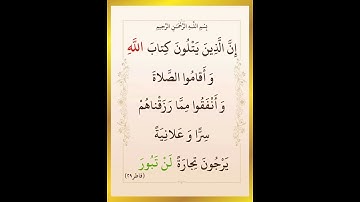 بِسْمِ اللَّهِ الرَّحْمَنِ الرَّحِيمِ
إِنَّ الَّذِينَ يَتْلُونَ كِتَابَ اللَّهِ
وَ أَقَامُوا الصَّلَاةَ
وَ أَنْفَقُوا مِمَّا رَزَقْنَاهُمْ
سِرًّا وَ عَلَانِيَةً
يَرْجُونَ تِجَارَةً لَنْ تَبُورَ
(فاطر/٢٩)